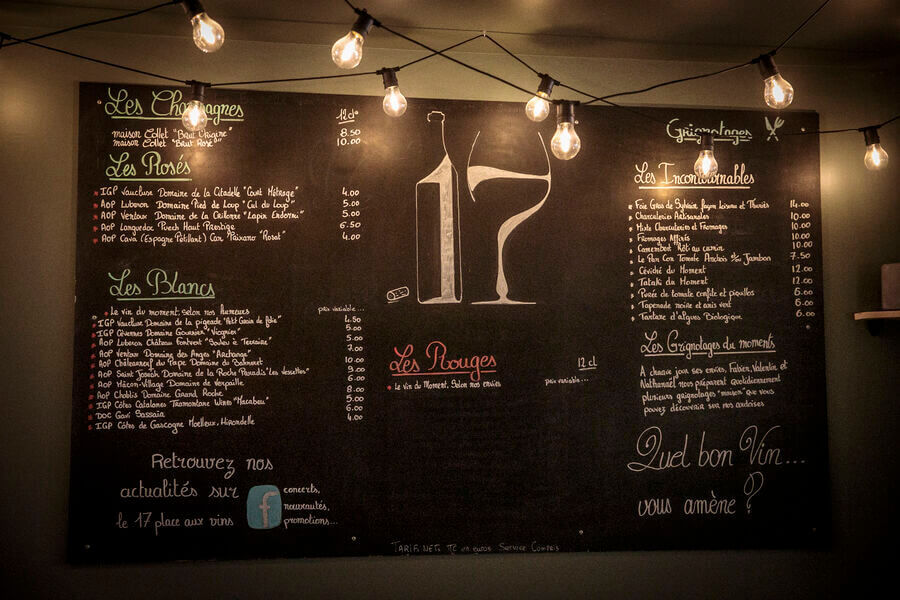 Les Champagnes 12 cl
maison Collet "Brut Origine" 8.50
maison Collet "Brut Rosé" 10.00
Les Rosés
IGP Vaucluse Domaine de la Citadelle "Court Métrage" 4.00
AOP Luberon Domaine Pied de Loup "Cul du Loup" 5.00
AOP Ventoux Domaine de la "Lapin Endormi" 5.00
AOP Languedoc Puech Haut Prestige 6.50
AOP Cava (Espagne Pétillant) Can "Paixano "Rosat" 4.00
Les Blancs
Le vin du moment, selon nos Humeurs prix variable...
IGP Vaucluse Domaine de la pigeade "Petit Grain de folie" 4.50
IGP Cévennes Domaine Gournier "Viognier" 5.00
AOP Luberon Château Fontvert 5.00
AOP Ventoux Domaine des Anges "Archange" 7.00
AOP Châteauneuf du Pape Domaine du Banneret 10.00
AOP Saint Joseph Domaine de la Roche Paradis 9.00
AOP Mâcon-Village Domaine de 6.00
AOP Chablis Domaine Grand Roche 8.00
IGP Côtes Catalanes Tramontane Wines "Macabeu" 5.00
DOC Gavi Sassaia 6.00
IGP Côtes de Gascogne Moelleux, Hirondelle 4.00
Retrouvez nos
actualités sur f concerts,
nouveautés,
le 17 place aux vins promotions...
17
Les Rouges 12 cl
Le vin du Moment, Selon nos envies prix variable...
Grignotages
Les Incontournables
Foie Gras de Sylvain façon 14.00
Charcuteries Artisanales 10.00
Mixte Charcuteries et Fromages 10.00
Fromages Affinés 10.00
Camembert Rôti au cumin 10.00
Le Pan Con Tomate Anchois ou Jambon 7.50
Céviché du Moment 12.00
Tataki du Moment 12.00
Purée de tomate confite et piquillos 6.00
Tapenade noire et anis vert 6.00
Tartare d'algues Biologique 6.00
Les Grignotages du moments
A chaque jour ses envies, Fabien, Valentin, et
Nathanaël nous préparent quotidiennement
plusieurs grignotages "maison" que vous
pouvez découvrir sur nos ardoises
Quel bon Vin...
vous amène ?
TARIF NETS TTC en euros Service Compris